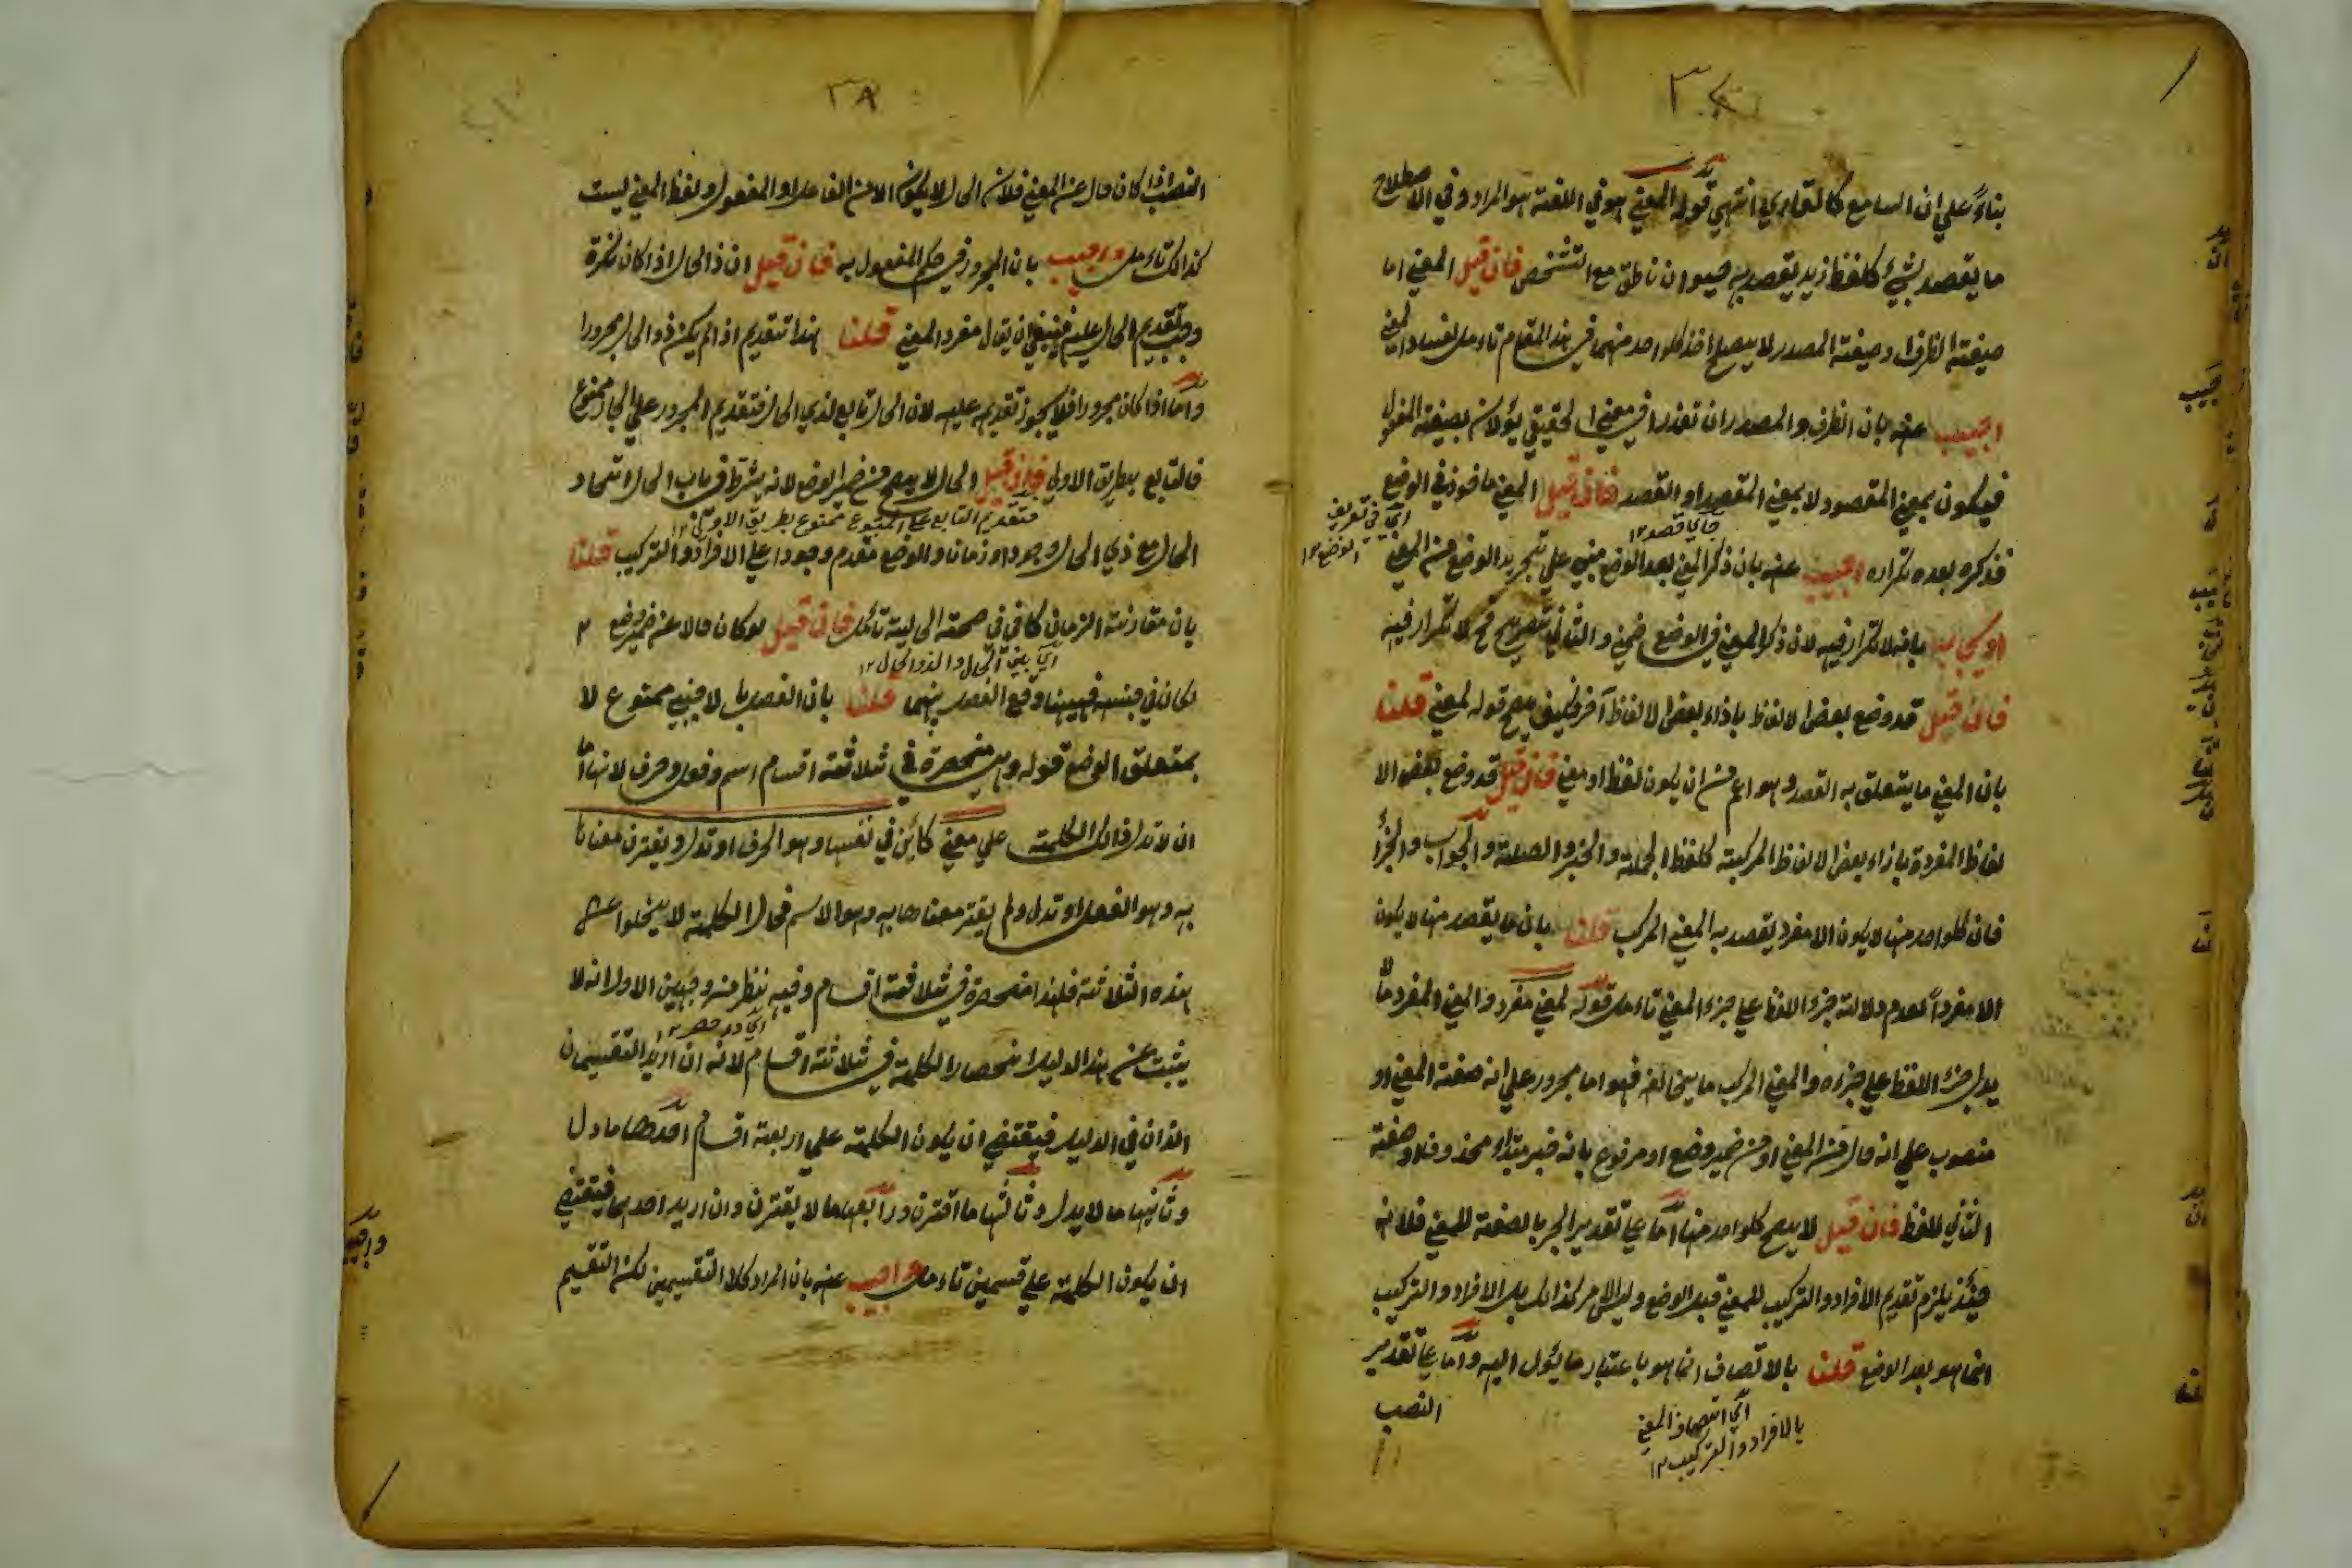 ٣٧
بناءً علي ان السامع كالقاري انتهي قوله المعني هو في اللغة هو المراد وفي الاصطلاح
ما يقصد بشيء كلفظ زيد يقصد به حيوان ناطق مع التشخص فان قيل المعني اما
صيغة الظرف او صيغة المصدر لا يصلح اخذ كلواحد منهما في هذا المقام تاءمل لفساد المعني
اجيب عنه بان الظرف والمصدر ان تعذرا في معني الحقيقي يؤلان بصيغة المفعول
فيكون بمعني المقصود لا بمعني المقصد او القصد فان قيل المعني ماخوذ في الوضع
اي في تعريف الوضع ١٢
فذكره بعده تكراره اجيب عنه بان ذكر المعني بعد الوضع مبني علي تجريد الوضع عن المعني
او يجاب بانه لا تكرار فيه لان ذكر المعني في الوضع ضمني والثاني تصريح فح لا تكرار فيه
فان قيل قد وضع بعض الالفاظ باذاء بعض الالفاظ آخر فكيف يصح قوله لمعني قلنا
بان المعني ما يتعلق به القصد وهو اعم من ان يكون لفظا او معني فان قيل قد وضع بعض الا
لفاظ المفردة بازاء بعض الالفاظ المركبة كلفظ الجملة والخبر والصلة والجواب والجزاء
فان كلواحد منها لا يكون الا مفرد يقصد به المعني المركب قلنا بان ما يقصد منها لا يكون
الا مفرداً لعدم دلالة جزء اللفظ علي جزء المعني تاءمل قوله لمعني مفرد والمعني المفرد ما لا
يدل جزء اللفظ علي جزءه والمعني المركب ما يخالفه فهو اما مجرور علي انه صفة المعني او
منصوب علي انه حال من المعني او من ضمير وضع او مرفوع بانه خبر مبتداء محذوف او صفة
الثاني للفظ فان قيل لا يصح كلواحد منها اما علي تقدير الجر بالصفة للمعني فلانه
حينئذ يلزم تقديم الافراد والتركيب للمعني قبل الوضع وليس الامر كذالك بل الافراد والتركيب
انما هو بعد الوضع قلنا بالاتصاف انما هو باعتبار ما يؤل اليه واما علي تقدير
النصب
اي اتصاف المعني
بالافراد والتركيب ١٢
٣٨
النصب اذا كان حال عن المعني فلان الحال لا يكون الا من الفاعل او المفعول ولفظ المعني ليست
كذالك تاءمل واجيب بان المجرور في حكم المفعول به فان قيل ان ذالحال اذا كان نكرة
وجب تقديم الحال عليه فينبغي ان يقال مفرد المعني قلنا هذا تقديم اذا لم يكن ذوالحال مجرورا
واما اذا كان مجرورا فلا يجوز تقديمه عليه لان الحال تابع لذي الحال فتقديم المجرور علي الجار ممنوع
فالتابع بطريق الاولي فان قيل الحال لا يصح من ضمير الوضع لانه يشترط في باب الحال اتحاد
فتقديم التابع علي المتبوع ممنوع بطريق الاولي ١٢
الحال مع ذي الحال وجودا وزمانا والوضع متقدم وجودا علي الافراد والتركيب قلنا
بان مقارنة الزمان كافي في صحة الحالية تاءمل فان قيل لو كان حالا عن ضمير وضع
اي بين الحال والذوالحال ١٢
لكان في جنبه فههنا وقع الفصل بينهما قلنا بان الفصل بالاجنبي ممتنوع لا
بمتعلق الوضع قوله وهي منحصرة في ثلاثة اقسام اسم وفعل وحرف لانها اما
ان لا تدل ذالك الكلمة علي معني كائن في نفسها وهو الحرف او تدل ويقترن معناها
به وهو الفعل او تدل ولم يقترن معناها به وهو الاسم فحال الكلمة لا يخلوا عن
هذه الثلاثة فلهذا منحصرة في ثلاثة اقسام وفيه نظر من وجهين الاول انه لا
يثبت عن هذا الدليل انحصار الكلمة في ثلاثة اقسام لانه ان اريد التقسيمان
الذان في الدليل فيقتضي ان يكون الكلمة علي اربعة اقسام احدها ما دل
وثانيها ما لا يدل وثالثها ما اقترن ورابعها ما لا يقترن وان اريد احدهما فيقتضي
ان يكون الكلمة علي قسمين تاءمل واجيب عنه بان المراد كلا التقسيمين لكن التقسيم